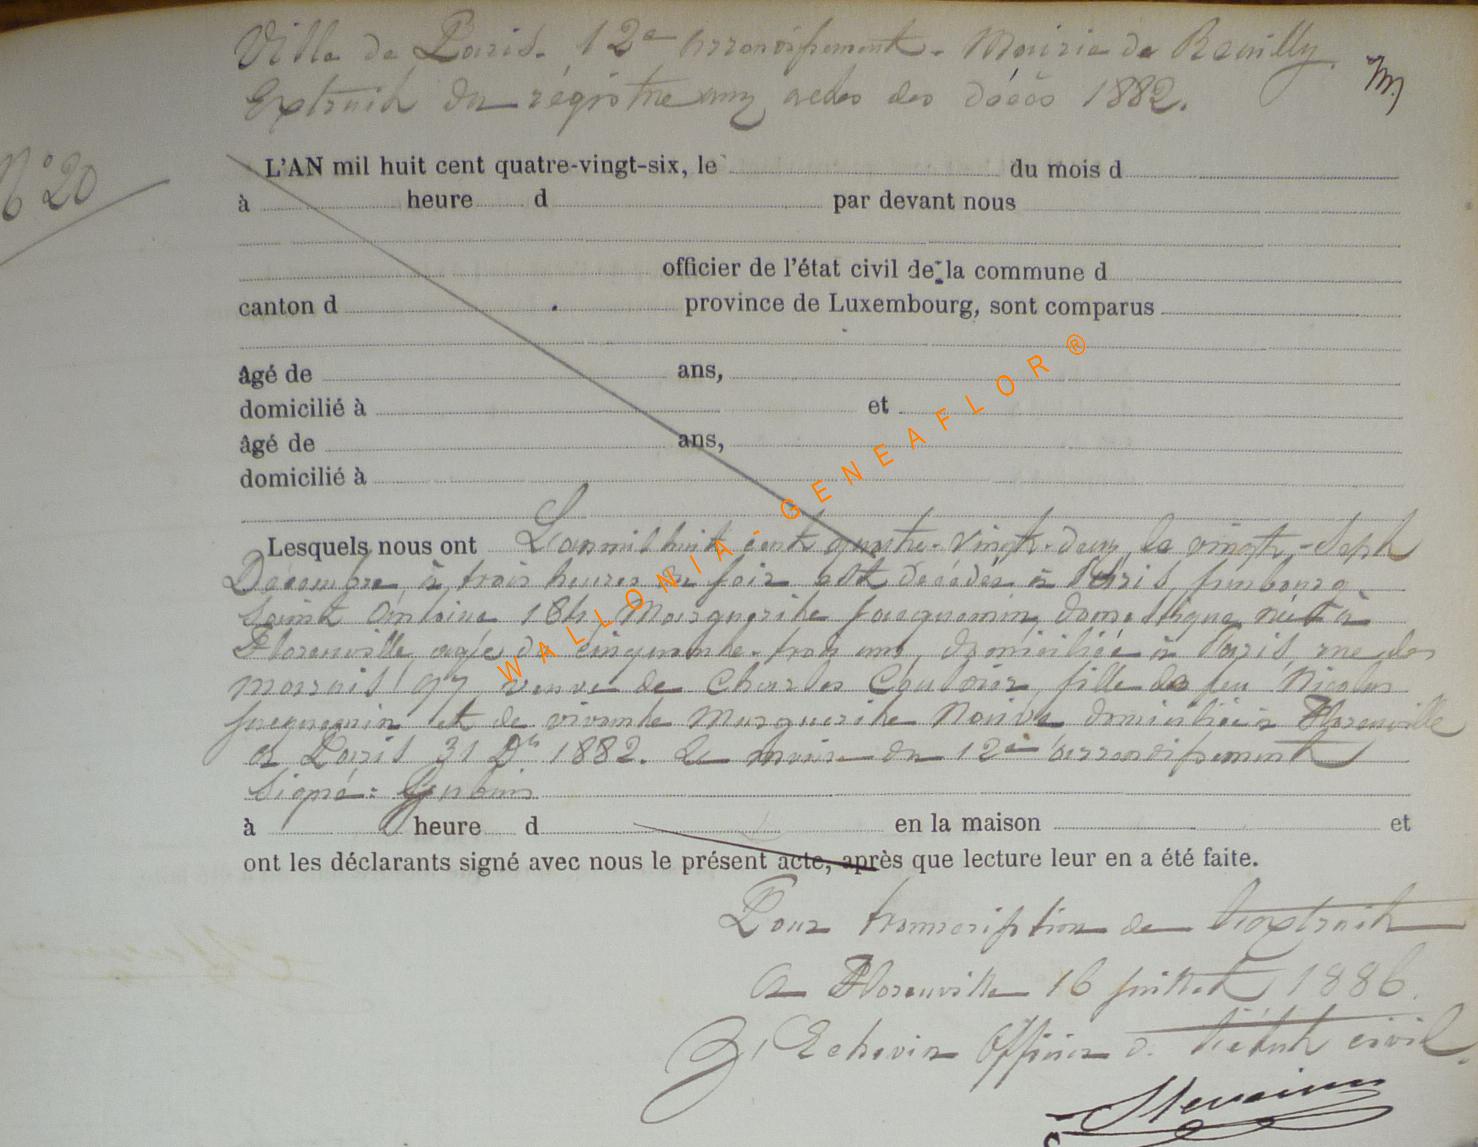 Ville de Paris. 12e arrondissement. Mairie de Reuilly.
Extrait du registre aux actes des décès 1882.
N° 20
L'AN mil huit cent quatre-vingt-six, le du mois d
à heure d par devant nous
officier de l'état civil de la commune d
canton d province de Luxembourg, sont comparus
âgé de ans,
domicilié à et
âgé de ans,
domicilié à
Lesquels nous ont L'an mil huit cent quatre-vingt-deux, le vingt-sept
Décembre, à trois heures du soir est décédée à Paris, faubourg
Saint Antoine 184, Marguerite Jacquemin, domestique, née à
Florenville, agée de cinquante-trois ans, domiciliée à Paris, rue des
marais 97, veuve de Charles, fille de feu Nicolas
Jacquemin et de vivante Marguerite domiciliée à Florenville
a Paris 31 Dbre 1882. Le maire du 12e arrondissement
Signé:
à heure d en la maison et
ont les déclarants signé avec nous le présent acte, après que lecture leur en a été faite.
Pour transcription de l'extrait
a Florenville 16 juillet 1886.
L'Echevin Officier d. l'état civil.
WALLONIA - GENEAFLOR ®